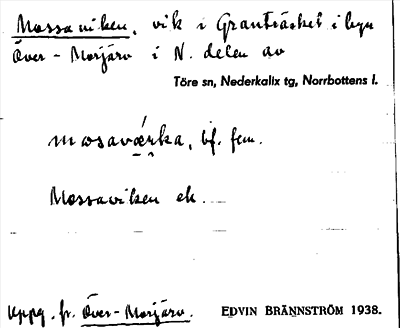 Mossaviken, vik i Granträsket i byn
Över-Morjärv i N. delen av
Töre sn, Nederkalix tg, Norrbottens l.
mosavǽrka, bf. fem.
Mossaviken ek.
Uppg. fr. Över-Morjärv. EDVIN BRÄNNSTRÖM 1938.